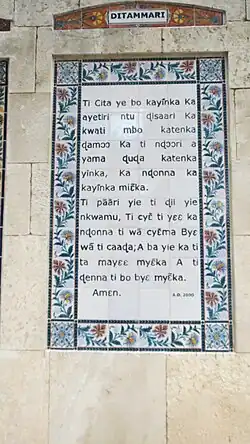 DITAMMARI
Ti Cita ye bo kayĩnka Ka
ayetiri ntu ɖisaari Ka
kwati mbo katenka
ɖamɔɔ Ka ti nɖɔɔri a
yama ɖuɖa katenka
yinka, Ka nɖonna ka
kayĩnka miɛ̃ka.
Ti pããri yie ti ɖii yie
nkwamu, Ti cyɛ̃ ti yɛɛ ka
nɖonna ti wã cyɛ̃ma Byɛ
wã ti caaɖa; A ba yie ka ti
ta mayɛɛ myɛ̃ka A ti
ɖenna ti bo byɛ myɛ̃ka.
Amɛn.
A.D. 2000